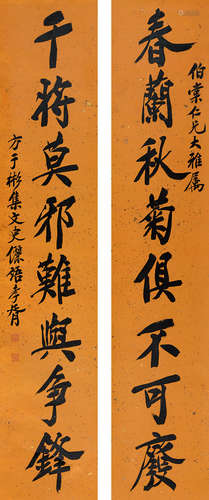 伯棠仁兄大雅属
春蘭秋菊俱不可廢
干將莫邪難與爭鋒
方于彬集文史傑語孝胥